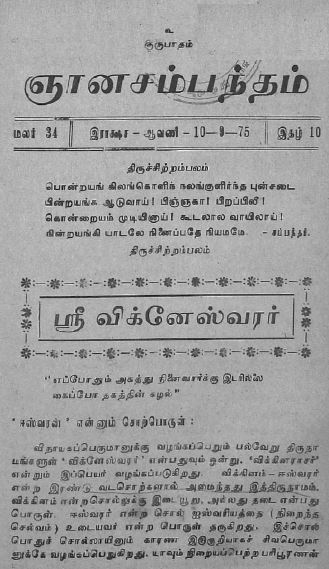 உ
குருபாதம்
ஞானசம்பந்தம்
மலர் 34 இராக்ஷஸ - ஆவணி - 10-9-75 இதழ் 10
திருச்சிற்றம்பலம்
பொன்றயங் கிலங்கொளிந் நலங்குளிர்ந்த புன்சடை
பின்றயங்க ஆடுவாய்! பிஞ்ஞகா! பிறப்பிலீ!
கொன்றையம் முடியினாய்! கூடலால வாயிலாய்!
நின்றயங்கி யாடலே நினைப்பதே நியமமே. - சம்பந்தர்.
திருச்சிற்றம்பலம்
ஸ்ரீ விக்னேஸ்வரர்
"எப்போதும் அகத்து நினைவார்க்கு இடரில்லை
கைப்போ தகத்தின் கழல்"
'ஈஸ்வரன்' என்னும் சொற்பொருள் :
விநாயகப்பெருமானுக்கு வழங்கப்பெறும் பல்வேறு திருநா
மங்களுள் 'விக்னேஸ்வரர்' என்பதுவும் ஒன்று, 'விக்கினராசர்'
என்றும் இப்பெயர் வழங்கப்படுகிறது. விக்கினம்-ஈஸ்வரர்
என்ற இரண்டு வடசொற்களால் அமைந்தது இத்திருநாமம்.
விக்கினம் என்றசொல்லுக்கு இடையூறு, அல்லது தடை என்பது
பொருள். ஈஸ்வரர் என்ற சொல் ஐஸ்வரியத்தை (நிறைந்த
செல்வம்) உடையவர் என்ற பொருள் தருகிறது. இச்சொல்
பொதுச் சொல்லாயினும் காரண இடுகுறியாகச் சிவபெருமா
னுக்கே வழங்கப்பெறுகிறது. யாவும் நிறையப்பெற்ற பரிபூரணன்